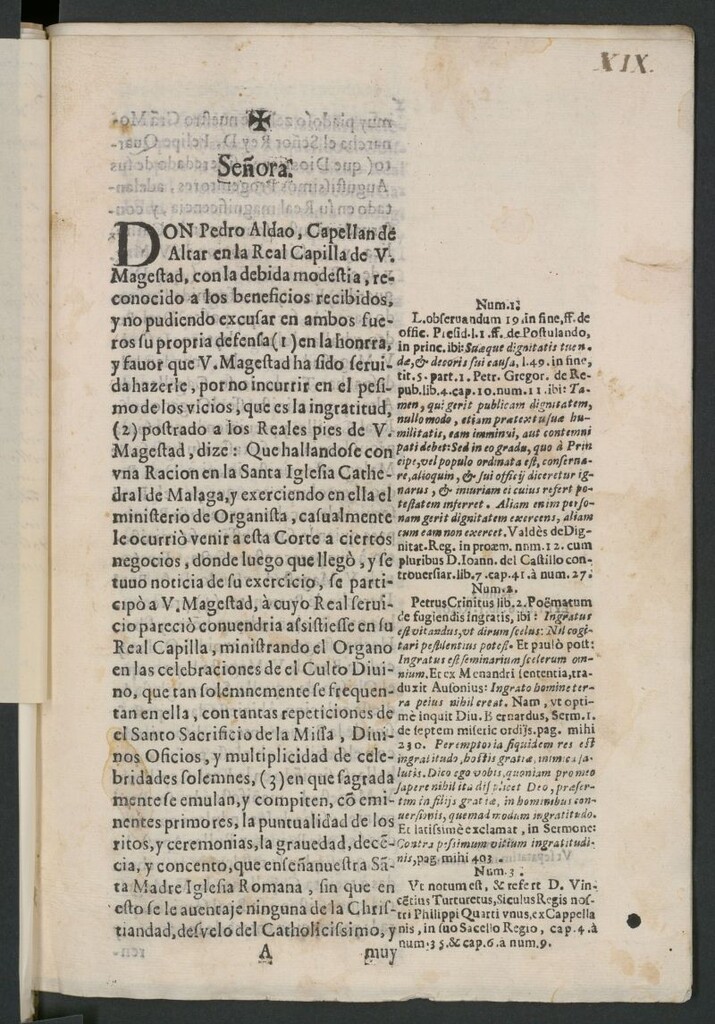 XIX.
✠
Señora.
DON Pedro Aldao, Capellan de
Altar en la Real Capilla de V.
Mageſtad, con la debida modeſtia, re-
conocido a los beneficios recibidos,
y no pudiendo excuſar en ambos fue-
ros ſu propria defenſa (1) en la honrra,
y fauor que V. Mageſtad ha ſido ſerui-
da hazerle, por no incurrir en el peſi-
mo de los vicios, que es la ingratitud,
(2) poſtrado a los Reales pies de V.
Mageſtad, dize: Que hallandoſe con
vna Racion en la Santa Igleſia Cathe-
dral de Malaga, y exerciendo en ella el
miniſterio de Organiſta, caſualmente
le ocurriò venir a eſta Corte a ciertos
negocios, donde luego que llegò, y ſe
tuuo noticia de ſu exercicio, ſe parti-
cipò a V. Mageſtad, à cuyo Real ſerui-
cio pareciò conuendria aſsiſtieſſe en ſu
Real Capilla, miniſtrando el Organo
en las celebraciones de el Culto Diui-
no, que tan ſolemnemente ſe frequen-
tan en ella, con tantas repeticiones de
el Santo Sacrificio de la Miſſa, Diui-
nos Oficios, y multiplicidad de cele-
bridades ſolemnes, (3) en que ſagrada
mente ſe emulan, y compiten, cõ emi-
nentes primores, la puntualidad de los
ritos, y ceremonias, la grauedad, decẽ-
cia, y concento, que enſeña nueſtra Sã-
ta Madre Igleſia Romana, ſin que en
eſto ſe le auentaje ninguna de la Chriſ-
tiandad, deſvelo del Catholiciſsimo, y
A muy
Num. 1.
L. obſeruandum 19. in fine, ff. de
offic. Preſid. l. 1. ff. de Poſtulando,
in princ. ibi: Suæque dignitatis tuen-
dæ, & decoris ſui cauſa, l. 49. in fine,
tit. 5. part. 1. Petr. Gregor. de Re-
pub. lib. 4. cap. 10. num. 11. ibi: Ta-
men, qui gerit publicam dignitatem,
nullo modo, etiam prætextu ſuæ hu-
militatis, eam imminui, aut contemni
pati debet: Sed in eo gradu, quo à Prin
cipe, vel populo ordinata eſt, conſerua-
re, alioquin, & ſui officij diceretur ig-
narus, & iniuriam ei cuius refert po-
teſtatem inferret. Aliam enim perſo-
nam gerit dignitatem exercens, aliam
cum eam non exercet. Valdès de Dig-
nitat. Reg. in proæm. num. 12. cum
pluribus D. Ioann. del Caſtillo con-
trouerſiar. lib. 7. cap. 41. à num. 27.
Num. 2.
Petrus Crinitus lib. 2. Poëmatum
de fugiendis ingratis, ibi: Ingratus
eſt vitandus, vt dirum ſcelus: Nil cogi-
tari peſtilentius poteſt. Et paulò poſt:
Ingratus eſt ſeminarium ſcelerum om-
nium. Et ex Menandri ſententia, tra-
duxit Auſonius: Ingrato homine ter-
ra peius nihil creat. Nam, vt opti-
mè inquit Diu. Bernardus, Serm. 1.
de ſeptem miſeric ordijs. pag. mihi
230. Peremptoria ſiquidem res eſt
ingratitudo, hoſtis gratiæ, inimica ſa-
lutis. Dico ego vobis, quoniam pro meo
ſapere nihil ita diſplicet Deo, præſer-
tim in filijs gratiæ, in hominibus con-
uerſionis, quemadmodum ingratitudo.
Et latiſsimè exclamat, in Sermone:
Contra peſsimum vitium ingratitudi-
nis, pag. mihi 403.
Num. 3.
Vt notum eſt, & refert D. Vin-
cẽtius Turturetus, Siculus Regis noſ-
tri Philippi Quarti vnus, ex Cappella
nis, in ſuo Sacello Regio, cap. 4. à
num. 35. & cap. 6. à num. 9.